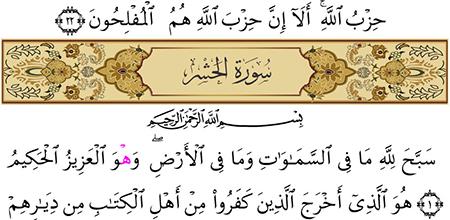 حِزْبُ ٱللَّهِۚ أَلَآ إِنَّ حِزْبَ ٱللَّهِ هُمُ ٱلْمُفْلِحُونَ ﴿٢٢﴾
سُورَةُ الحَشْرِ
بِسْمِ ٱللَّهِ ٱلرَّحْمَٰنِ ٱلرَّحِيمِ
سَبَّحَ لِلَّهِ مَا فِى ٱلسَّمَـٰوَٰتِ وَمَا فِى ٱلْأَرْضِۖ وَهُوَ ٱلْعَزِيزُ ٱلْحَكِيمُ
﴿١﴾ هُوَ ٱلَّذِىٓ أَخْرَجَ ٱلَّذِينَ كَفَرُوا۟ مِنْ أَهْلِ ٱلْكِتَـٰبِ مِن دِيَـٰرِهِمْ